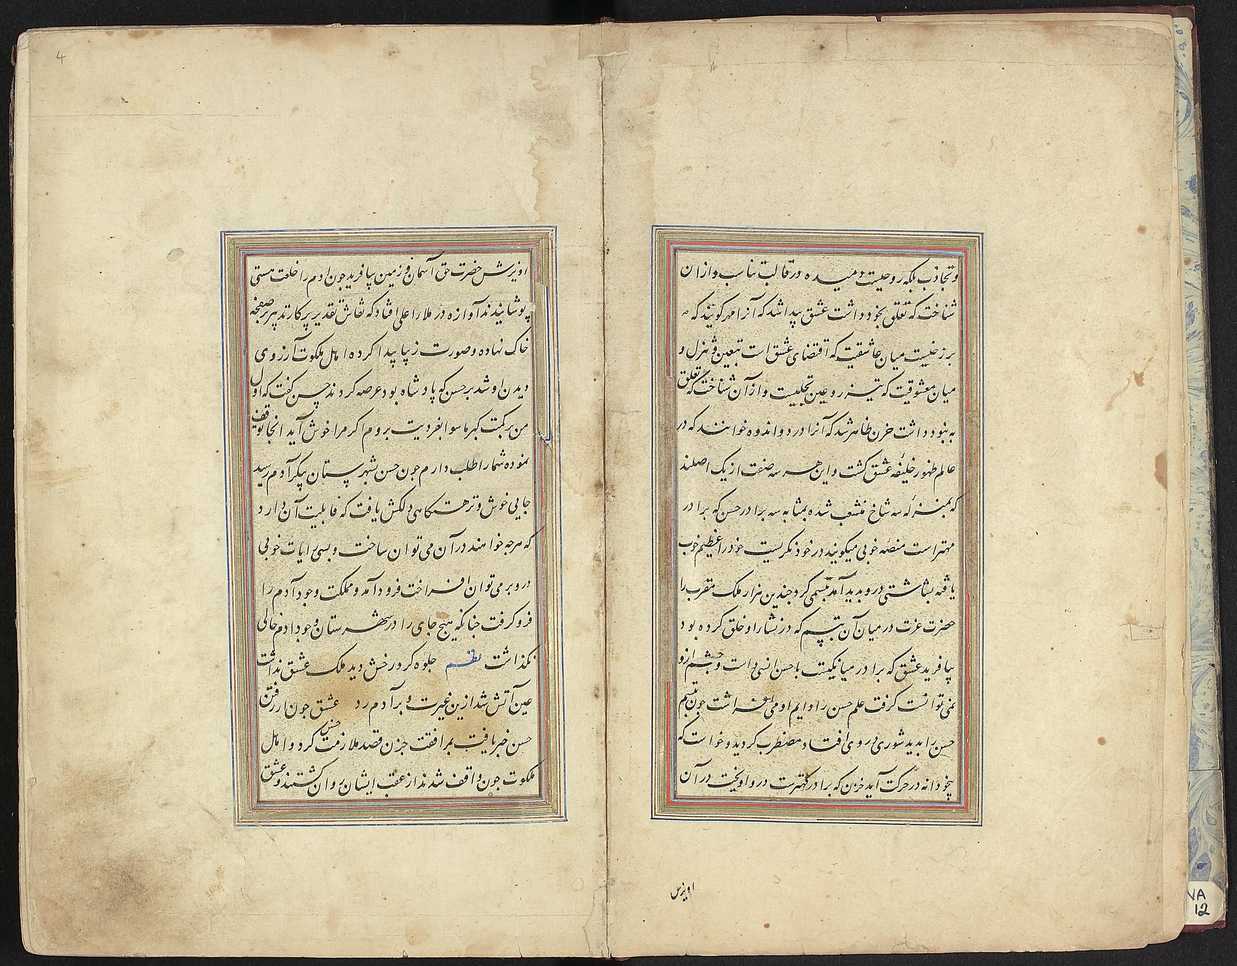 و تجاذب بلکه روحیست دمیده در قالب تناسب و ازان
شناخت که تعلق بخود داشت عشق پیدا شد که آنرا مهر کویند که
برزخیست میان عاشقیت که اقتضای عشق است بتعین و تنزل و
میان معشوقیت که تیز رو عین تجلیست و از آن شناخت که تعلق
به نبود داشت حزن ظاهر شد که آنرا درد و اندوه خوانند که در
عالم ظهور خلیفه عشق کشت و این هر سه صفت از یک اصلند
که بمنزله سه شاخ منشعب شده بمثابه سه برادر حسن که برادر
مهتر است منصه خوبی میکویند در خود نکریست خود را عظیم خوب
یافته بشاشتی درو پدید آمد تبسمی کرد چندین هزار ملک مقرب را
حضرت عزت در میان آن تبسم که در نشار او خلق کرده بود
بیافرید عشق که برادر میانکیست با حسن انسی داشت و چشم ازو
نمی توانست کرفت علم حسن را دایم او می افراشت چون تبسم
حسن را بدید شوری در وی افتاد مضطرب کردید و خواست که
خودانه در حرکت آید حزن که برادر کهترست درو آویخت در آن
اویزش
4
اویزش حضرت حق آسمان و زمین بیافرید جون ادم را خلعت هستی
پوشانیدند آوازه در ملاء اعلی افتاد که نقاش تقدیر پرکار تدبیر بر صفحه
خاک نهاده و صورت زیبا پیدا کرده اهل ملکوت آرزوی
دیدن او شد بر حسن که پادشاه بود عرصه کردند حسن کفت که اول
من بر کمیت کبریا سوار بفردیت بروم اکر مرا خوش آید انجا توقف
نموده شما را طلب دارم جون حسن شهرستان پیکر آدم رسید
جایی خوش و نزهتکاهی دلکش یافت که قابلیت آن دارد
که هرچه خواهند در آن می توان ساخت و بسی رایات خوبی
درو بر می توان افراخت فرود آمد و مملکت وجود آدم را
فرو کرفت جنانکه هیج جای را در شهرستان وجود ادم خالی
نکذاشت نظم جلوه کرد رخش دید ملک عشق نداشت
عین آتش شد ازین غیرت و بر آدم زد عشق جون از رفتن
حسن خبر یافت بمرافقت حزن قصد ملازمت حسن کرد و اهل
ملکوت جون واقف شدند از عقب ایشان روان کشتند و عشق
VA
12